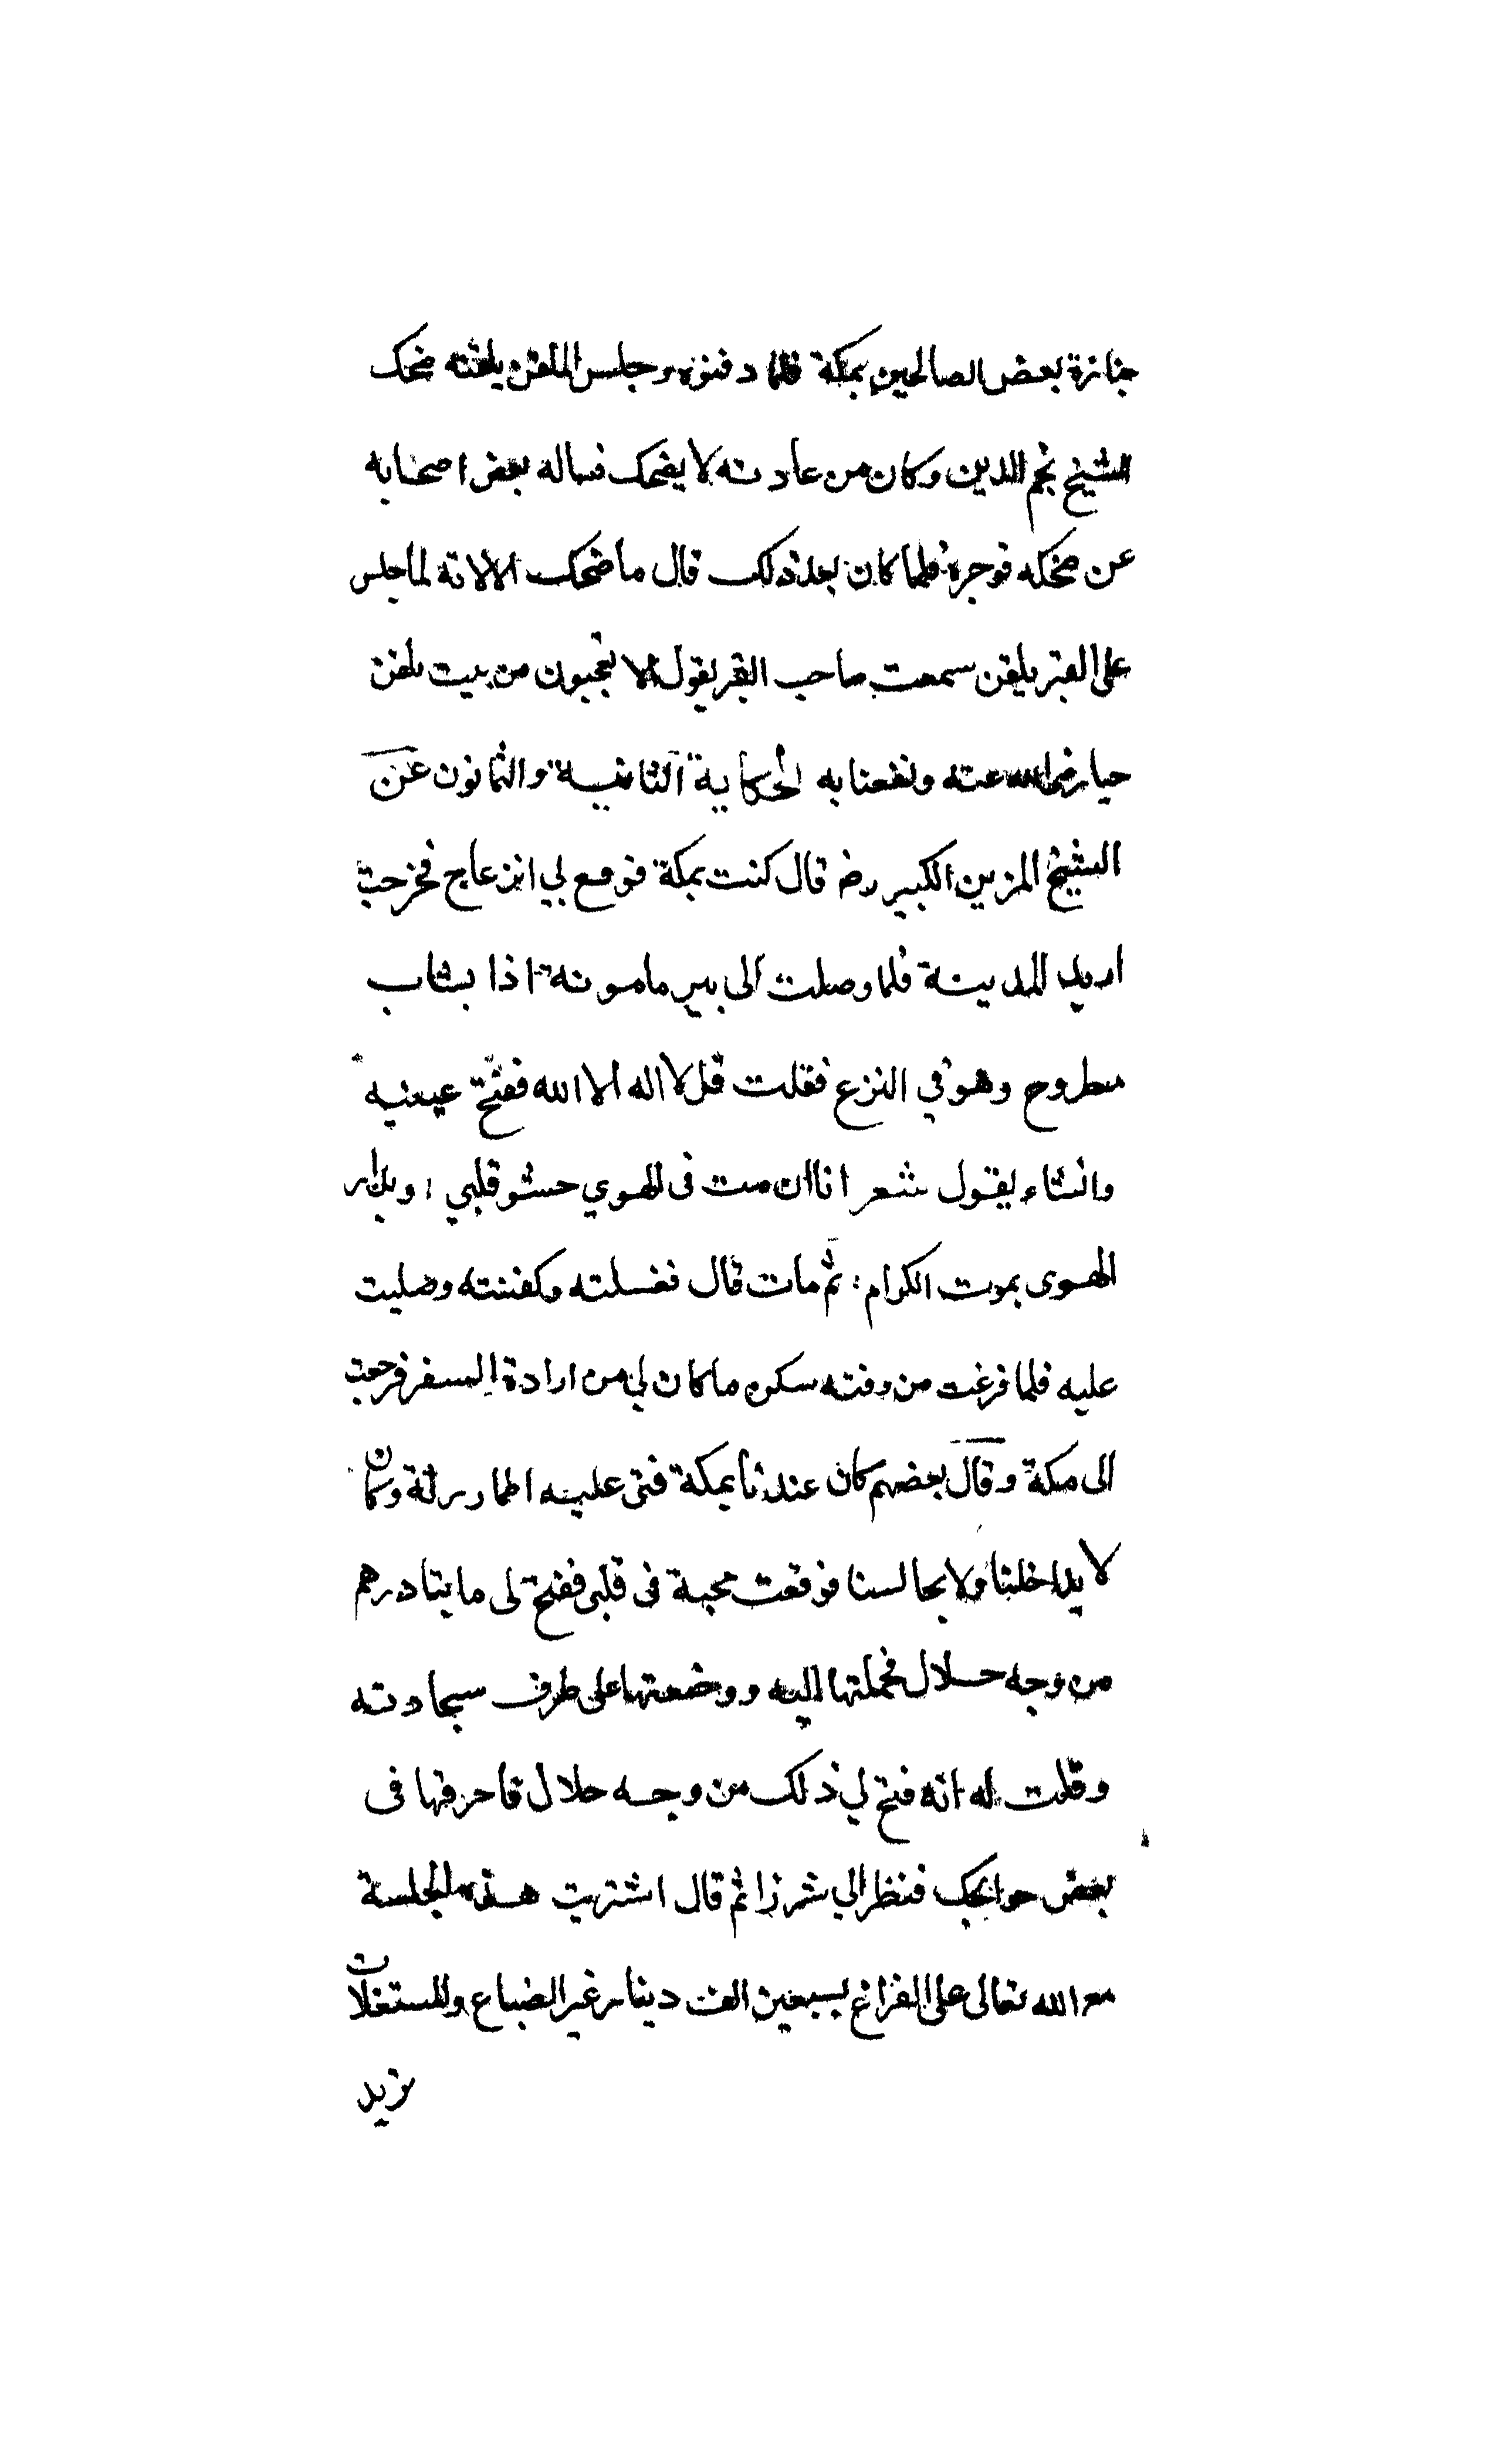 جنازة بعض الصالحين بمكة فلما دفنوه وجلس الملقن يلقنه ضحك
الشيخ نجم الدين وكان من عادته لا يضحك فساله بعض اصحابه
عن ضحكه فوجره فلما كان بعد ذلك قال ما ضحك الا لانه لما جلس
على القبر يلقن سمعت صاحب القبر يقول الا تعجبون من ميت يلقن
حيا رضي الله عنه ونفعنا به الحكاية الثانية والثمانون عن
الشيخ المزين الكبير رضـ قال كنت بمكة فوقع لي انزعاج فخرجت
اريد المدينة فلما وصلت الى بير مامونة اذا بشاب
مطروح وهو في النزع فقلت قل لا اله الا الله ففتح عينيه
وانشاء يقول شعر انا ان مت فى الهوي حشو قلبي وبداء
الهوى يموت الكرام ثم مات قال فغسلته وكفنته وصليت
عليه فلما فرغت من دفنه سكن ما كان لي من ارادة السفر فرجعت
الى مكة وقال بعضهم كان عندنا بمكة فتى عليه اطمار رثة وكان
لا يداخلنا ولا يجالسنا فوقعت محبة فى قلبى ففتح لى مايتا درهم
من وجه حلال فحملتها اليه ووضعتها على طرف سجادته
وقلت له انه فتح لي ذلك من وجه حلال فاصرفها فى
بعض حوايجك فنظر الي شزرا ثم قال اشتريت هذه الجلسة
مع الله تعالى على الفراغ بسبعين الف دينار غير الضياع والمستغلات
نريد